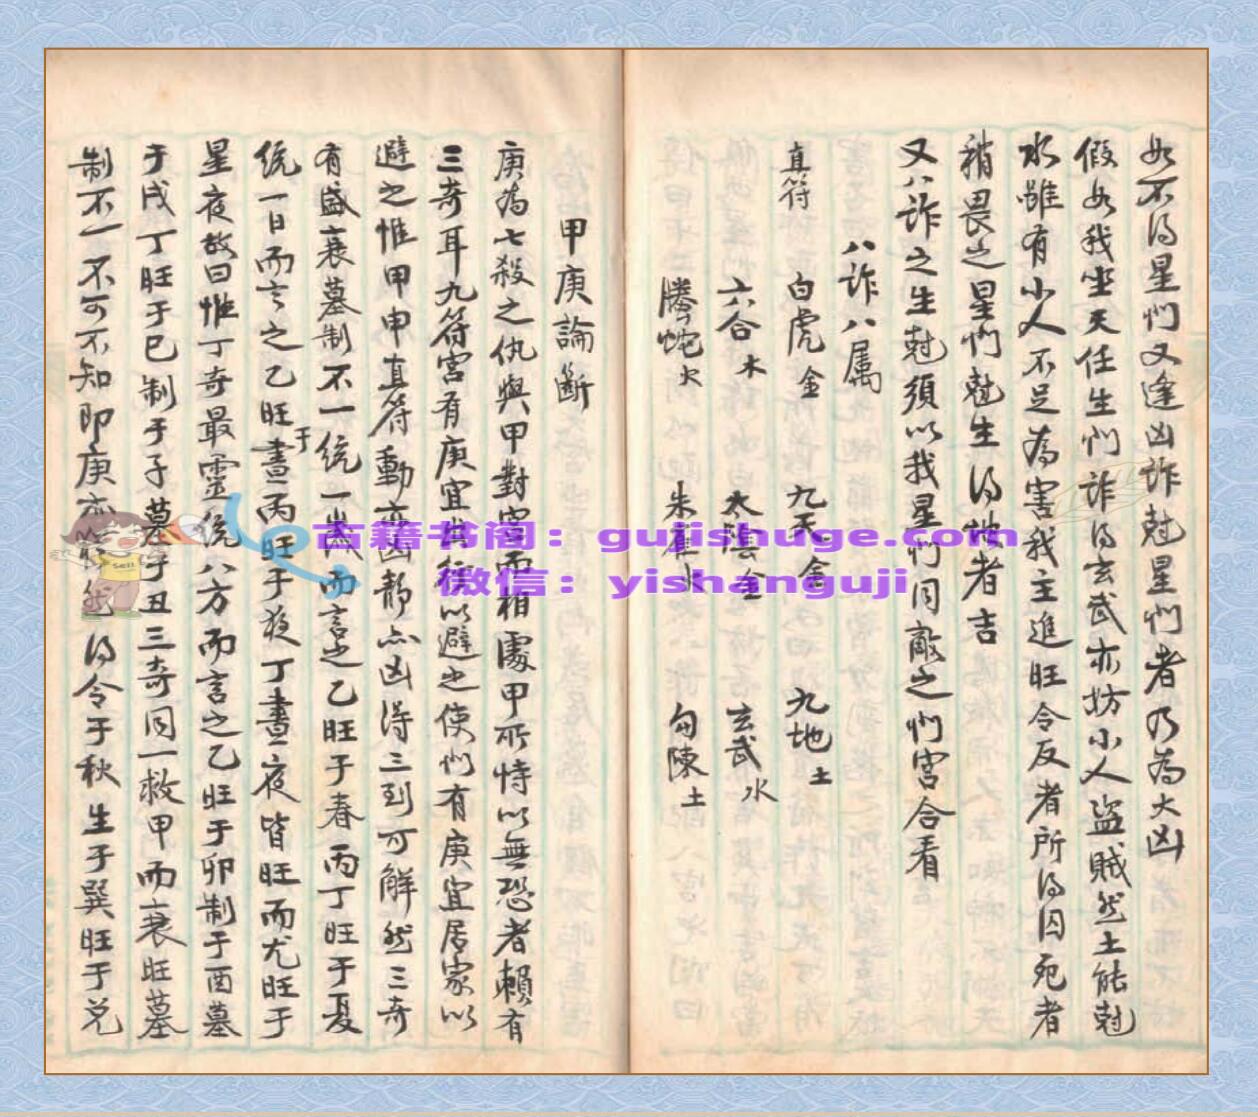 如不得星们又逢凶诈尅星们者乃為大凶
假如我坐天任生们诈得玄武亦坊小人盗贼然土能尅
水雖有小人不足為害我主進旺令反者所得囚死者
稍畏之星们尅生得地者吉
又八诈之生尅須以我星们同敵之们宫合看
八诈八属
直符 白虎金 九天金 九地土
六合木 太陰金 玄武水
騰蛇火 朱雀火 勾陳土
甲庚論斷
庚為七殺之仇與甲對宫而相處甲所恃以無恐者賴有
三奇耳九符宫有庚宜出行以避之使们有庚宜居家以
避之惟甲申直符動亦凶静亦凶得三到可解然三奇
有盛衰墓制不一統一歲而言之乙旺于春丙丁旺于夏
統一日而言之乙旺于晝丙旺于夜丁晝夜皆旺而尤旺于
星夜故曰惟丁奇最靈統八方而言之乙旺于卯制于酉墓
于戌丁旺于巳制于子墓于丑三奇同一救甲而衰旺墓
制不一不可不知即庚亦 然得令于秋生于巽旺于兑
古籍书阁：gujishuge.com
微信：yishanguji
Sell